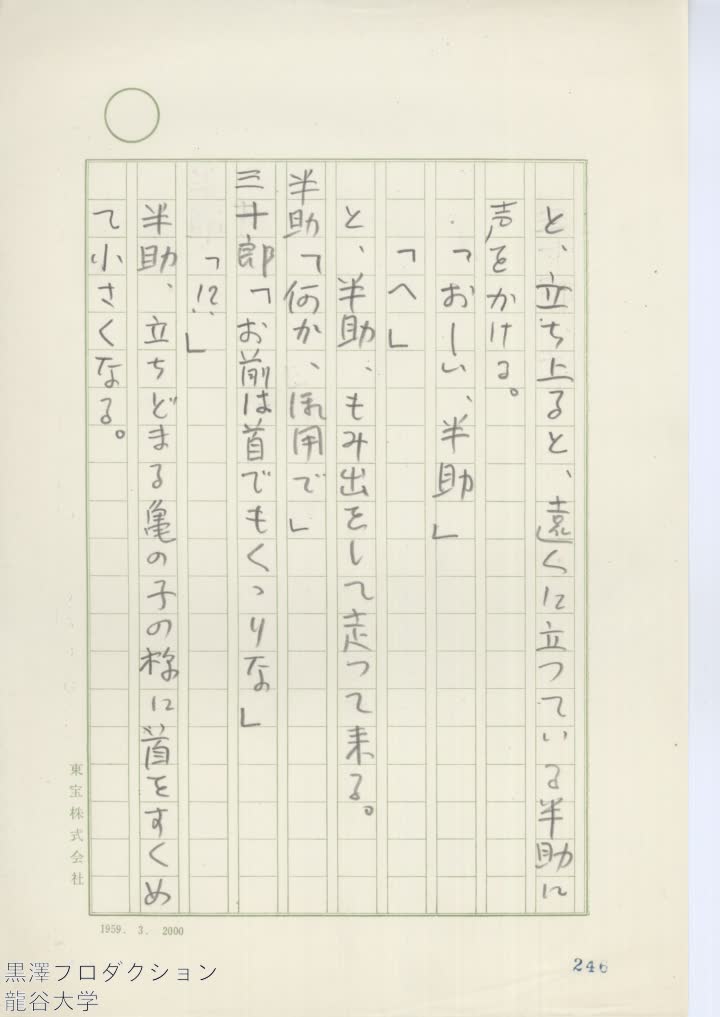 と、立ち上ると、遠くに立つている半助に
声をかける。
「おーい、半助」
「へ」
と、半助、もみ出をして走つて来る。
半助「何か、御用で」
三十郎「お前は首でもくゝりな」
「!?」
半助、立ちどまる亀の子の様に首をすくめ
て小さくなる。
東宝株式会社
1959. 3. 2000
246
黒澤プロダクション
龍谷大学